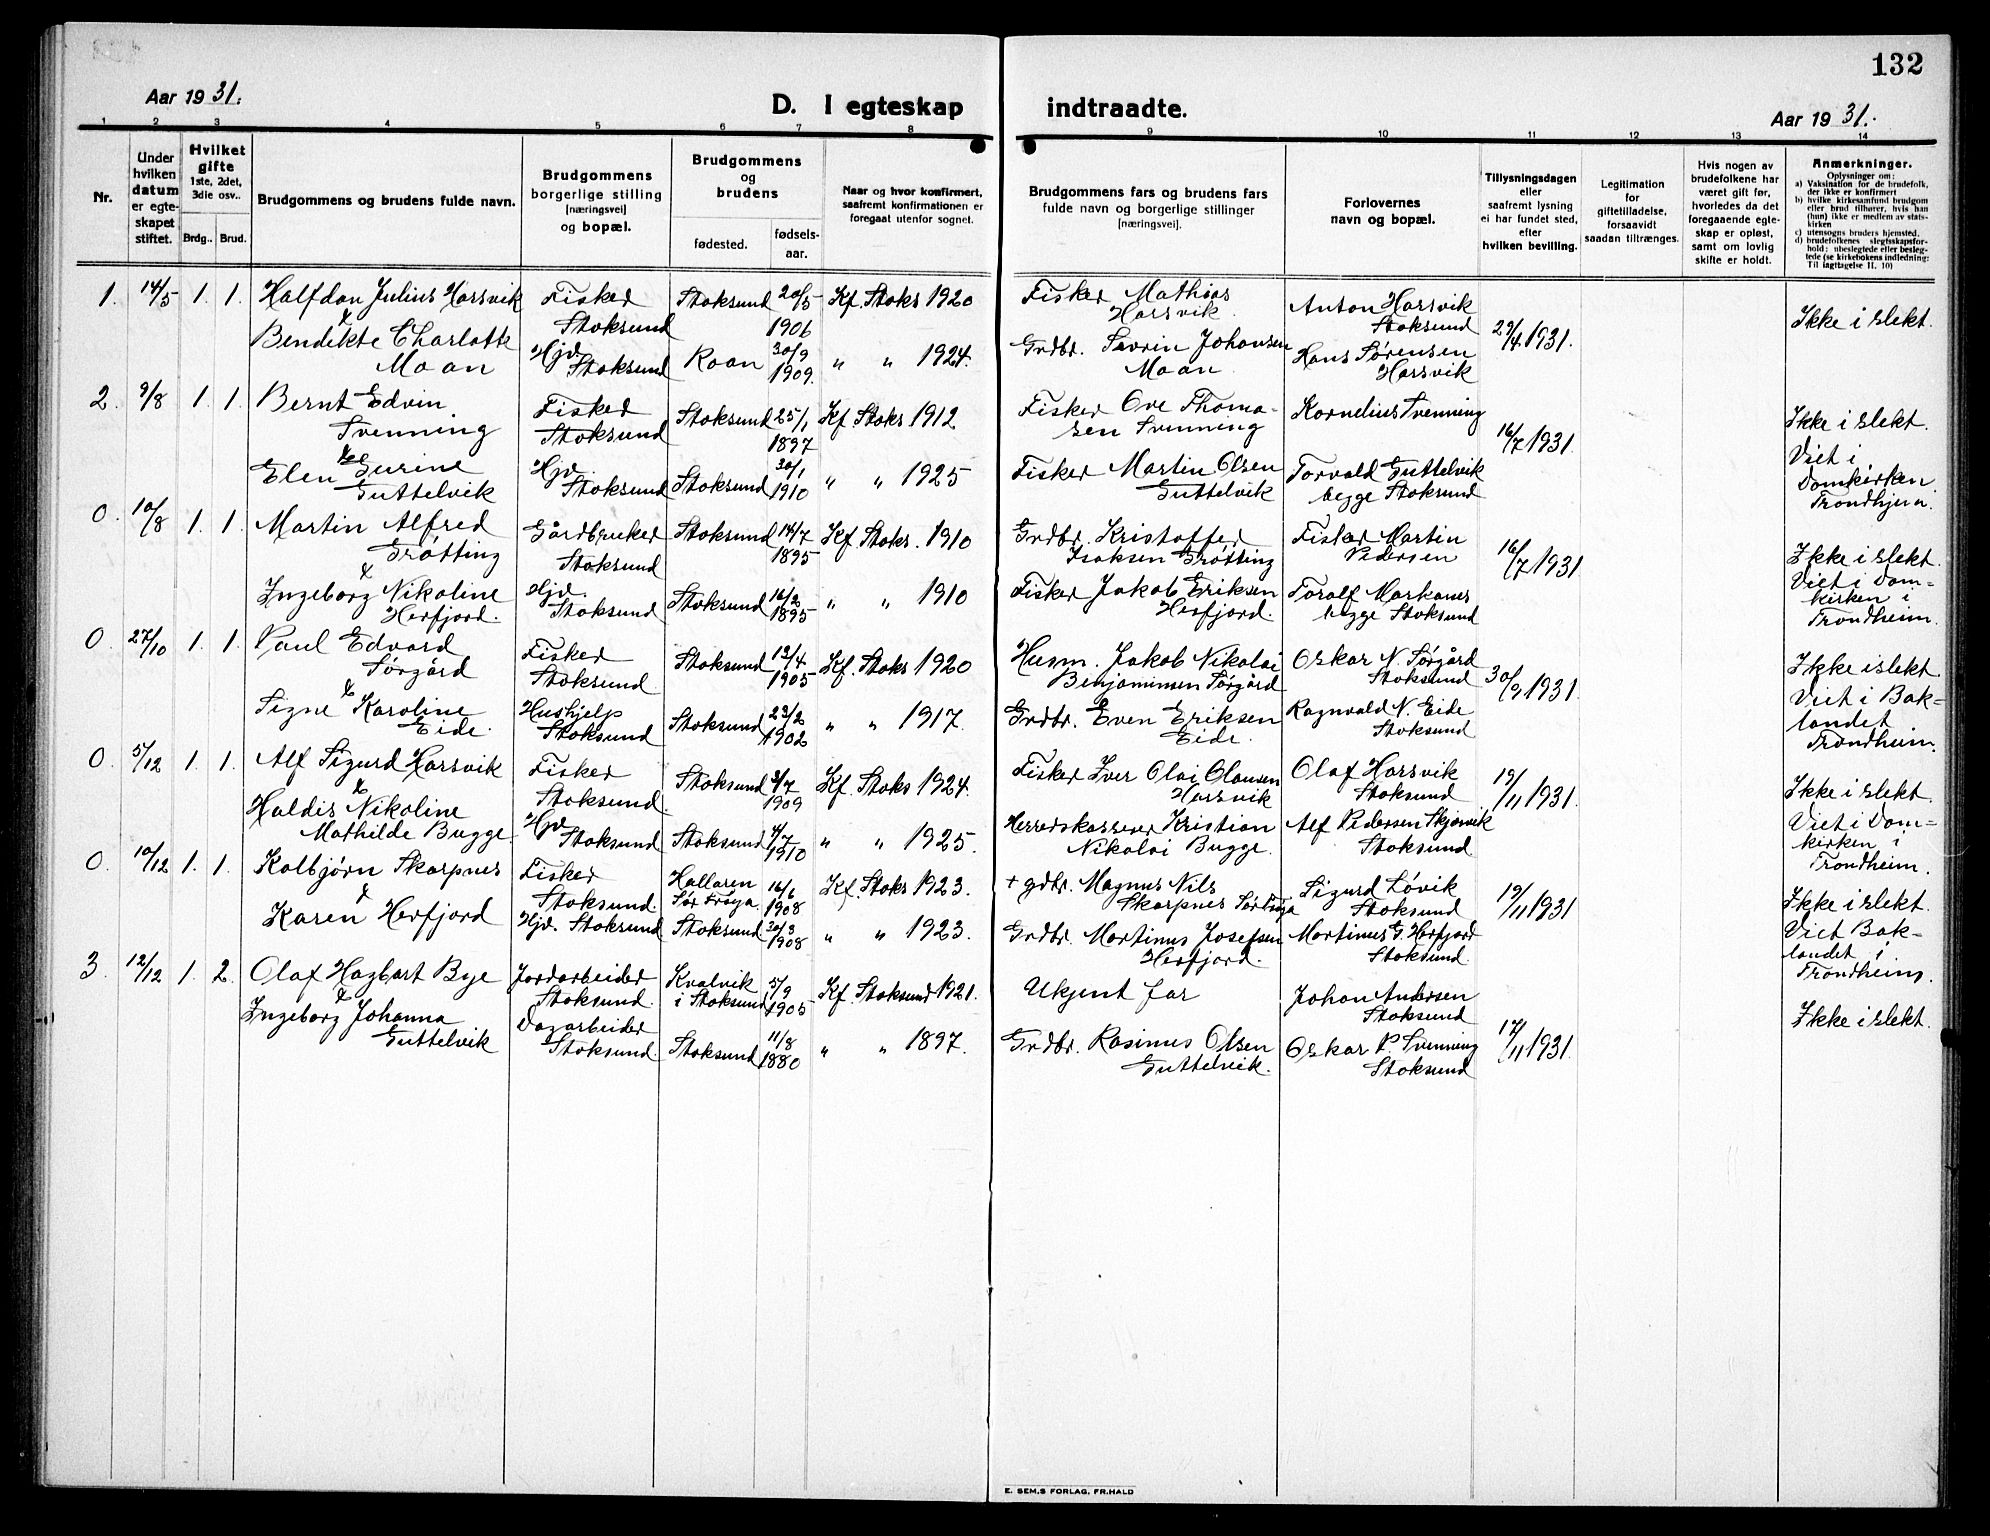 132
Aar 19 31.
D. I egteskap indtraadte.
Aar 19 31.
1 2 3 4 5 6 7 8 9 10 11 12 13 14
Nr.
Under hvilken datum er egteskapet stiftet.
Hvilket gifte 1ste, 2det, 3die osv..
Brdg.. Brud.
Brudgommens og brudens fulde navn.
Brudgommens borgerlige stilling [næringsvei] og bopæl.
Brudgommens og brudens
fødested.
fødsels-aar.
Naar og hvor konfirmert, saafremt konfirmationen er foregaat utenfor sognet.
Brudgommens fars og brudens fars fulde navn og borgerlige stillinger [næringsvei].
Forlovernes navn og bopæl.
Tillysningsdagen eller saafremt lysning ei har fundet sted, efter hvilken bevilling.
Legitimation for giftetilladelse, forsaavidt saadan tiltrænges.
Hvis nogen av brudefolkene har været gift før, hvorledes da det foregaaende egteskap er opløst, samt om lovlig skifte er holdt.
Anmerkninger.
Oplysninger om:
a) Vaksination for de brudefolk, der ikke er konfirmert
b) hvilke kirkesamfund brudgom eller brud tilhører, hvis han (hun) ikke er medlem av statskirken
c) utensogns bruders hjemsted.
d) brudefolkenes slegtsskapsforhold: ubeslegtede eller beslegtede (se kirkebokens indledning: Til iagttagelse II. 10)
1. 14/5 1. 1. Halfdan Julius Harsvik
&
Bendikte Charlotte
Moan
Fisker
Stoksund
Hjv.
Stoksund
Stoksund 20/5
1906
Roan 30/9
1909.
Kf. Stoks 1920
" " 1924.
Fisker Mathias
Harsvik
Grdbr. Sevrin Johansen
Moan
Anton Harsvik
Stoksund
Hans Sørensen
Harsvik
29/4 1931.
Ikke i slekt.
2. 9/8 1. 1. Bernt Edvin
Svenning
&
Elen Gurine
Guttelvik
Fisker
Stoksund
Hjv.
Stoksund
Stoksund 25/1
1897
Stoksund 30/1
1910
Kf. Stoks 1912
" " 1925
Fisker Ove Thoma-
sen Svenning
Fisker Martin Olsen
Guttelvik
Kornelius Svenning
Torvald Guttelvik
begge Stoksund
16/7 1931
Ikke i slekt.
Viet i
Domkirken
Trondhjem.
0. 10/8 1. 1. Martin Alfred
Grøtting
&
Ingeborg Nikoline
Herfjord.
Gårdbruker
Stoksund
Hjv.
Stoksund
Stoksund 14/7
1895
Stoksund 16/2
1895
Kf. Stoks. 1910
" " 1910
Grdbr. Kristoffer
Isaksen Grøtting
Fisker Jakob Eriksen
Herfjord.
Fisker Martin
Pedersen
Toralf Markanes
begge Stoksund
16/7 1931
Ikke i slekt.
Viet i Dom-
kirken i
Trondheim.
0 27/10 1. 1. Paul Edvard
Sørgård
&
Signe Karoline
Eide.
Fisker
Stoksund.
Hushjelp
Stoksund
Stoksund 12/4
1905
Stoksund 23/2
1902
Kf. Stoks 1920
" " 1917.
Husm. Jakob Nikolai
Benjaminsen Sørgård
Grdbr. Even Eriksen
Eide.
Oskar N. Sørgård
Stoksund
Ragnvald N. Eide
Stoksund
30/9 1931.
Ikke i slekt
Viet i Bak-
landet
Trondheim.
0. 5/12 1. 1. Alf Sigurd Harsvik
&
Haldis Nikoline
Mathilde Bugge.
Fisker
Stoksund.
Hjv.
Stoksund
Stoksund 3/7
1909
Stoksund 4/7
1910
Kf. Stoks 1924.
" " 1925.
Fisker Iver Olai Olausen
Harsvik
Herredskasserer Kristian
Nikolai Bugge.
Olaf Harsvik
Stoksund
Alf Pedersen Skjærvik
Stoksund
19/11 1931.
Ikke i slekt.
Viet i Dom-
kirken i
Trondheim.
0. 10/12 1. 1. Kolbjørn Skarpnes
&
Karen Herfjord
Fisker
Stoksund.
Hjv. Stoksund
Hallaren
Sør Frøya 16/6
1908
Stoksund 30/3
1908
Kf. Stoks 1923.
" " 1923.
+ gdbr. Magnus Nils
Skarpnes Sørfrøya
Grdbr. Martinus Josefsen
Herfjord.
Sigurd Løvik
Stoksund
Martinus G. Herfjord
Stoksund.
19/11 1931
Ikke i slekt.
Viet Bak-
landet i
Trondheim.
3. 12/12 1. 2. Olaf Hagbart Bye
&
Ingeborg Johanna
Guttelvik
Jordarbeider
Stoksund.
Dagarbeider
Stoksund.
Kvalvik
i Stoksund 5/9
1905
Stoksund 11/8
1880
Kf. Stoksund 1921.
" " 1897.
Ukjent far
Grdbr. Rasinus Olsen
Guttelvik.
Johan Andersen
Stoksund
Oskar P. Svenning
Stoksund
17/11 1931.
Ikke i slekt.
E. SEM.S FORLAG, FR.HALD